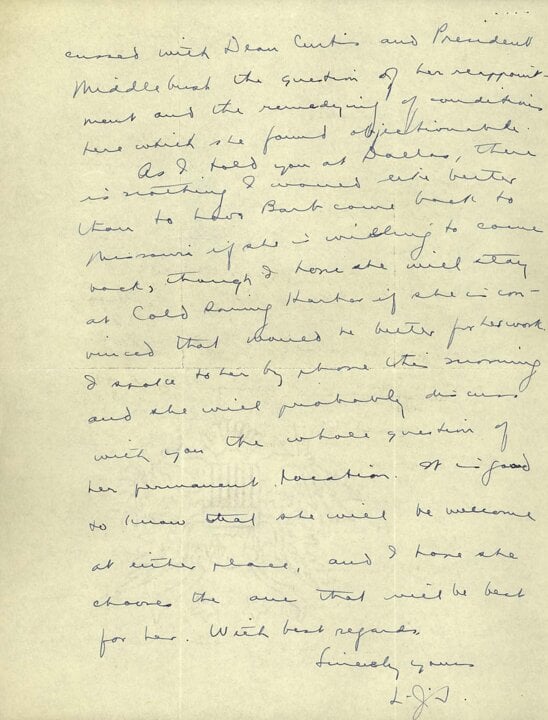 cussed with Dean Curtis and President
Middlebush the question of her reappoint-
ment and the remedying of conditions
here which she found objectionable.
As I told you at Dallas, there
is nothing I would like better
than to have Barb come back to
Missouri if she is willing to come
back, though I hope she will stay
at Cold Spring Harbor if she is con-
vinced that would be better for her work.
I spoke to her by phone this morning
and she will probably discuss
with you the whole question of
her permanent location. It is good
to know that she will be welcome
at either place, and I hope she
chooses the one that will be best
for her. With best regards,
Sincerely yours
L.J.S.